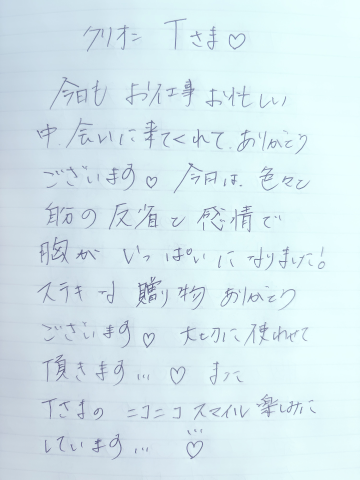 クリオネ Tさま♡
今日も お仕事 お忙しい
中、会いに来てくれて、ありがとう
ございます♡ 今日は、色々と
自分の 反省と 感情で
胸が いっぱいに なりました!
ステキな 贈り物 ありがとう
ございます♡ 大切に 使わせて
頂きます... ♡ また
Tさまの ニコニコ スマイル 楽しみに
しています... ♡